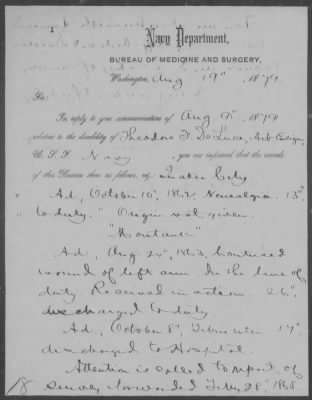 Navy Department,
BUREAU OF MEDICINE AND SURGERY,
Washington, Aug 19th 1879
Sir:
In reply to your communication of Aug 9th 1879
relative to the disability of Theodore F. DeLuce, Act. Ensign,
U.S. Navy, you are informed that the records
of this Bureau show as follows, viz: "Quaker City
Ad, October 10th, 1862. Neuralgia. 13th,
to duty." Origin not given.
"Montauk"
Ad, Aug. 24th, 1863, Contused
wound of left arm. In the line of
duty. Received in action. 26th,
discharged to duty.
Ad, October 8th, 17th,
discharged to Hospital.
Attention is called to report of
survey forwarded Feby 28th, 1865